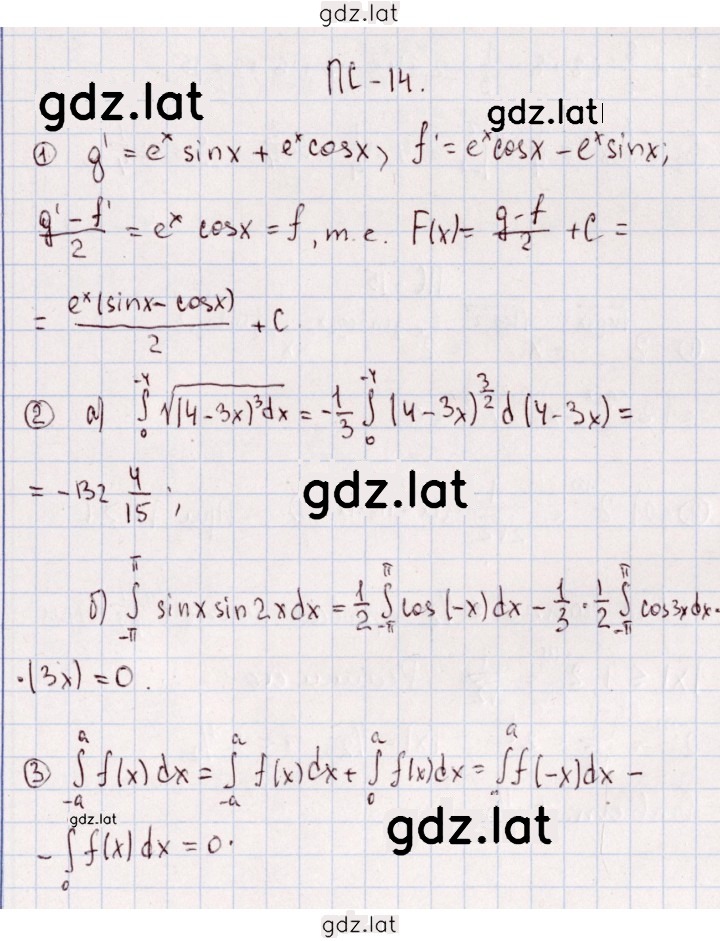 gdz.lat
ПС-14.
gdz.lat
gdz.lat
① g' = eˣ sinx + eˣ cosx, f' = eˣcosx - eˣsinx;
(g' - f')/2 = eˣ cosx = f, т.е. F(x) = (g-f)/2 + C =
= eˣ(sinx - cosx)/2 + C
② а) ∫₀⁻⁴ √(4-3x)³dx = -1/3 ∫₀⁻⁴ (4-3x)^(3/2) d(4-3x) =
= -132 4/15;
gdz.lat
б) ∫_{-π}^{π} sinx sin2xdx = 1/2 ∫_{-π}^{π} cos(-x)dx - 1/3 · 1/2 ∫_{-π}^{π} cos3xdx·
·(3x) = 0.
③ ∫_{-a}^{a} f(x)dx = ∫_{-a}^{a} f(x)dx + ∫₀^{a} f(x)dx = ∫^{a} f(-x)dx -
gdz.lat
gdz.lat
- ∫₀ f(x)dx = 0.
gdz.lat